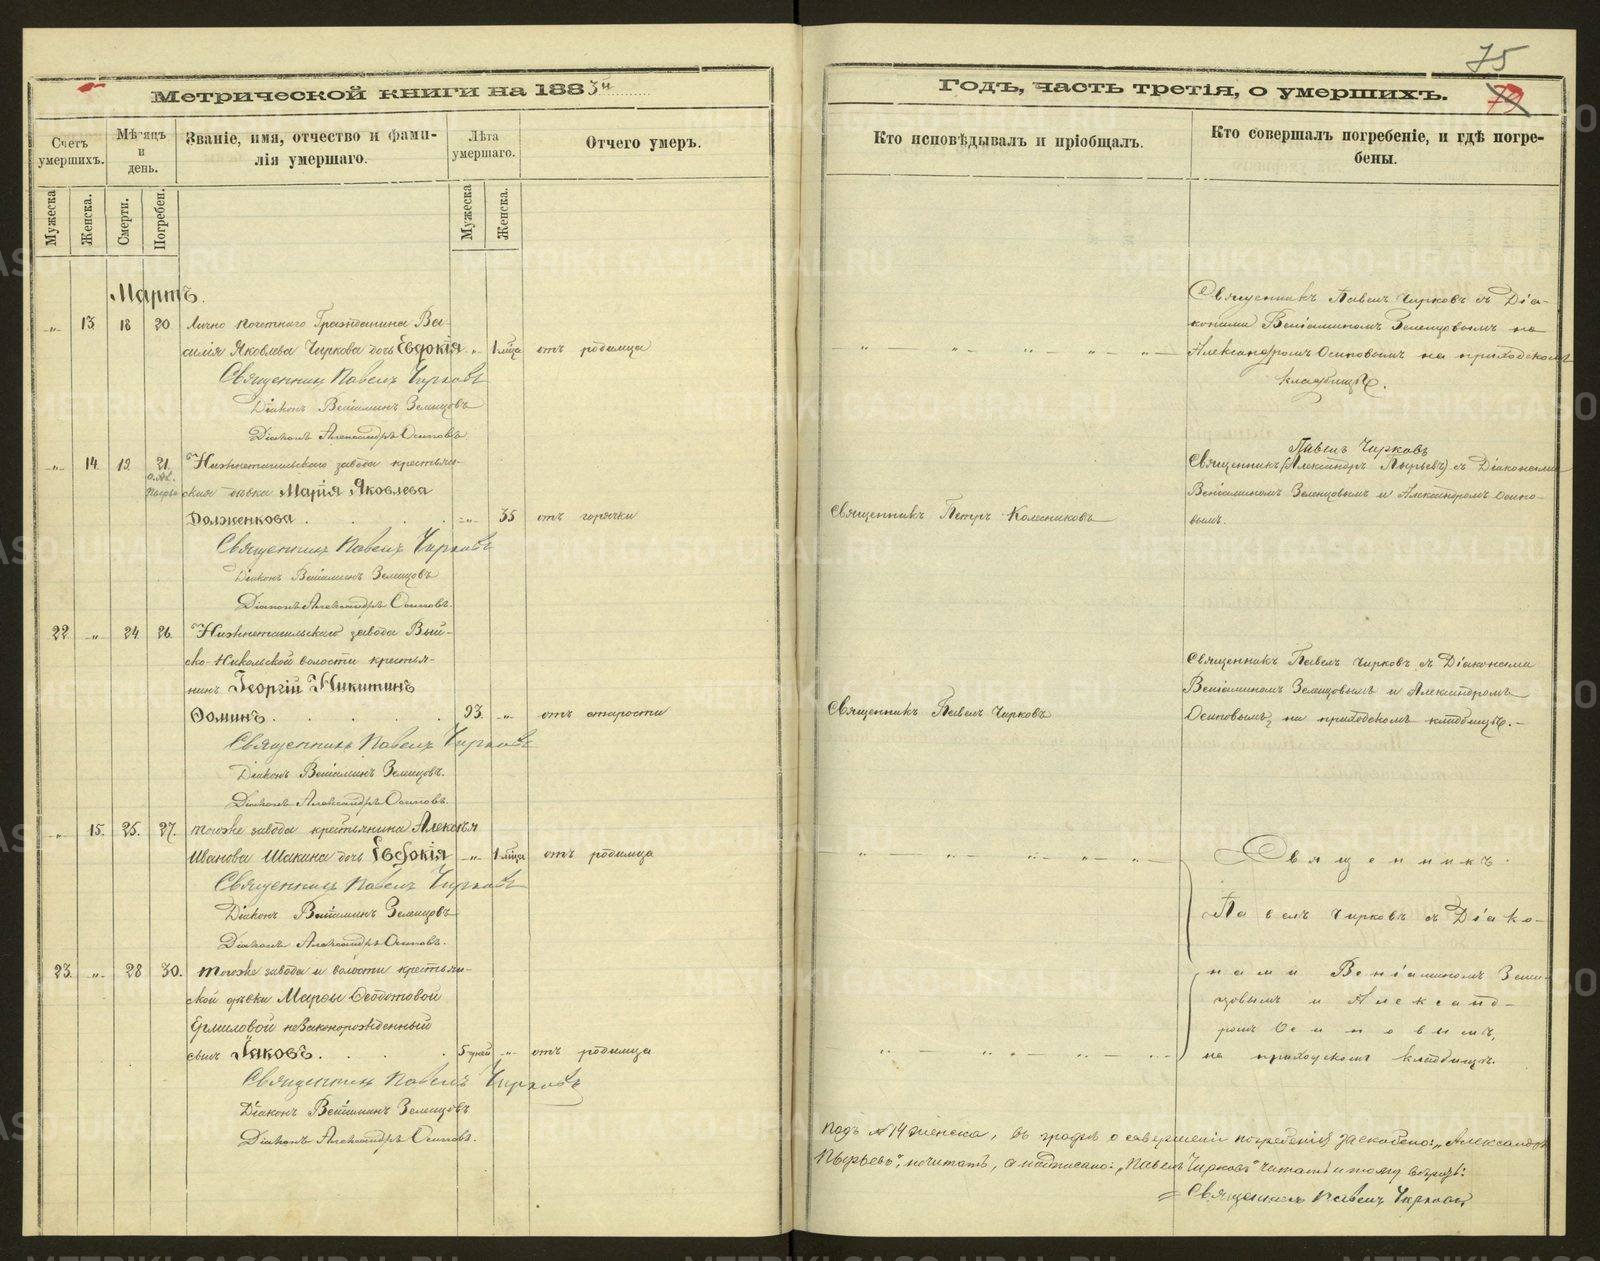 75
Метрической книги на 1883й
Годъ, часть третія, о умершихъ.
79
Счетъ умершихъ.
Мѣсяцъ и день.
Званіе, имя, отчество и фами-
лія умершаго.
Лѣта умершаго.
Отчего умеръ.
Кто исповѣдывалъ и пріобщалъ.
Кто совершалъ погребеніе, и гдѣ погре-
бены.
Мужеска
Женска.
Смерти.
Погребен.
Мужеска
Женска.
Мартъ.
13. 18 20 Лично почетнаго Гражданина Ва-
силія Яковлева Чиркова дочь Евдокія 1 мѣца отъ родимца
Священникъ Павелъ Чирковъ
Діаконъ Веніаминъ Земцовъ
Діаконъ Александръ Осиповъ.
Священникъ Павелъ Чирковъ съ Діа-
конами Веніаминомъ Земцовымъ и
Александромъ Осиповымъ на приходскомъ
кладбищѣ.
14. 19 21. Нижнетагильскаго завода крестьян-
ская дѣвка Марія Яковлева
Долженкова 35 отъ горячки
Священникъ Павелъ Чирковъ
Діаконъ Веніаминъ Земцовъ
Діаконъ Александръ Осиповъ.
Священникъ Петръ Колесниковъ
Павелъ Чирковъ
Священникъ (Александръ Пырьевъ) съ Діаконами
Веніаминомъ Земцовымъ и Александромъ Осипо-
вымъ.
22 24 26 Нижнетагильскаго завода Вый-
ско-Никольской волости крестья-
нинъ Георгій Никитинъ
Ѳоминъ. 93. отъ старости
Священникъ Павелъ Чирковъ
Діаконъ Веніаминъ Земцовъ.
Діаконъ Александръ Осиповъ.
Священникъ Павелъ Чирковъ
Священникъ Павелъ Чирковъ съ Діаконами
Веніаминомъ Земцовымъ и Александромъ
Осиповымъ, на приходскомъ кладбищѣ.
15. 25. 27. тогоже завода крестьянина Алексѣя
Иванова Шакина дочь Евдокія 1 мѣца отъ родимца
Священникъ Павелъ Чирковъ
Діаконъ Веніаминъ Земцовъ
Діаконъ Александръ Осиповъ.
23. 28 30. тогоже завода и волости крестьян-
ской дѣвки Марѳы Ѳеодотовой
Ермиловой незаконорожденный
сынъ Іаковъ. 5 дней отъ родимца
Священникъ Павелъ Чирковъ
Діаконъ Веніаминъ Земцовъ
Діаконъ Александръ Осиповъ.
Священникъ
Павелъ Чирковъ съ Діако-
нами Веніаминомъ Зем-
цовымъ и Александ-
ромъ Осиповымъ,
на приходскомъ кладбищѣ.
Подъ № 14 женска, въ графѣ о совершеніи погребенія заскоблено: „Александръ
Пырьевъ", не читать, а надписано: „Павелъ Чирковъ" читать и тому вѣрить:
Священникъ Павелъ Чирковъ
METRIKI.GASO-URAL.RU